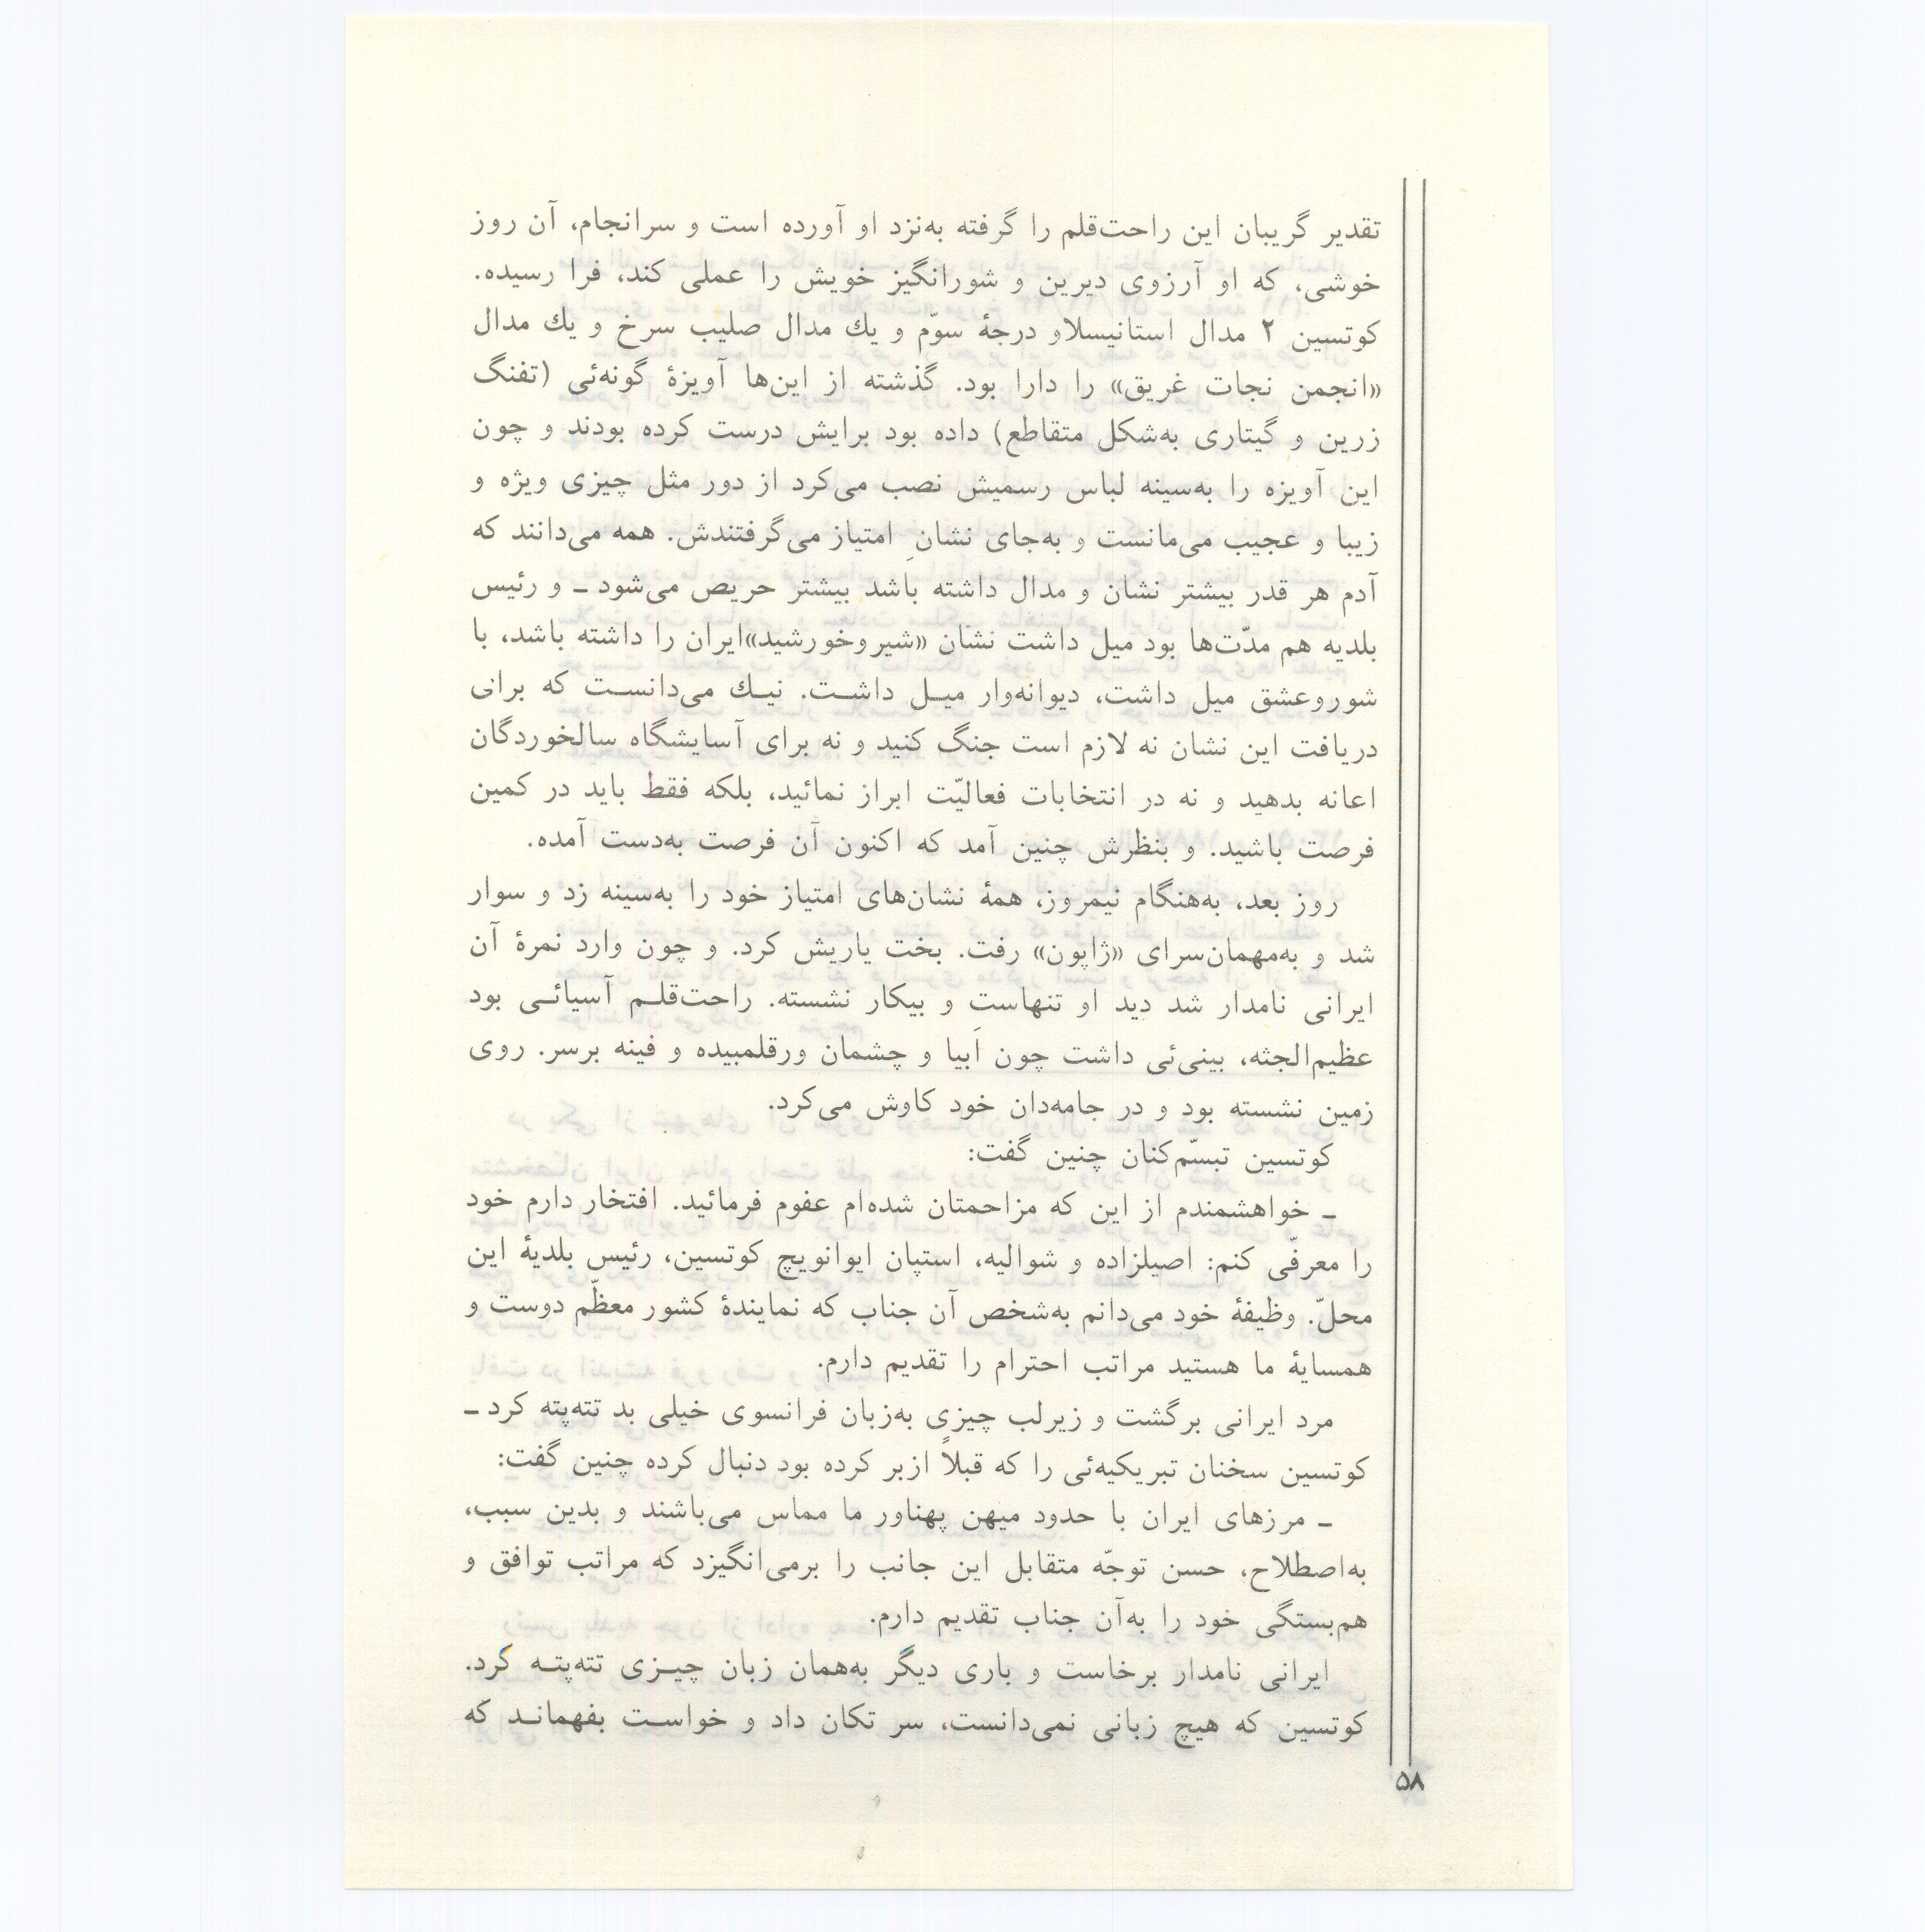 تقدیر گریبان این راحت‌قلم را گرفته به‌نزد او آورده است و سرانجام، آن روز
خوشی، که او آرزوی دیرین و شورانگیز خویش را عملی کند، فرا رسیده.
کوتسین ۲ مدال استانیسلاو درجهٔ سوّم و یك مدال صلیب سرخ و یك مدال
«انجمن نجات غریق» را دارا بود. گذشته از این‌ها آویزهٔ گونه‌ئی (تفنگ
زرین و گیتاری به‌شکل متقاطع) داده بود برایش درست کرده بودند و چون
این آویزه را به‌سینه لباس رسمیش نصب می‌کرد از دور مثل چیزی ویژه و
زیبا و عجیب می‌مانست و به‌جای نشانِ امتیاز می‌گرفتندش. همه می‌دانند که
آدم هر قدر بیشتر نشان و مدال داشته باشد بیشتر حریص می‌شود ـ و رئیس
بلدیه هم مدّت‌ها بود میل داشت نشان «شیروخورشید»ایران را داشته باشد، با
شوروعشق میل داشت، دیوانه‌وار میـل داشـت. نیـك می‌دانسـت که برای
دریافت این نشان نه لازم است جنگ کنید و نه برای آسایشگاه سالخوردگان
اعانه بدهید و نه در انتخابات فعالیّت ابراز نمائید، بلکه فقط باید در کمین
فرصت باشید. و بنظرش چنین آمد که اکنون آن فرصت به‌دست آمده.
روز بعد، به‌هنگام نیمروز، همهٔ نشان‌های امتیاز خود را به‌سینه زد و سوار
شد و به‌مهمان‌سرای «ژاپون» رفت. بخت یاریش کرد. و چون وارد نمرهٔ آن
ایرانی نامدار شد دید او تنهاست و بیکار نشسته. راحت‌قلـم آسیائـی بود
عظیم‌الجثه، بینی‌ئی داشت چون اَبیا و چشمان ورقلمبیده و فینه برسر. روی
زمین نشسته بود و در جامه‌دان خود کاوش می‌کرد.
کوتسین تبسّم‌کنان چنین گفت:
ـ خواهشمندم از این که مزاحمتان شده‌ام عفوم فرمائید. افتخار دارم خود
را معرفّی کنم: اصیلزاده و شوالیه، استپان ایوانویچ کوتسین، رئیس بلدیهٔ این
محلّ. وظیفهٔ خود می‌دانم به‌شخص آن جناب که نمایندهٔ کشور معظّم دوست و
همسایهٔ ما هستید مراتب احترام را تقدیم دارم.
مرد ایرانی برگشت و زیرلب چیزی به‌زبان فرانسوی خیلی بد تته‌پته کرد ـ
کوتسین سخنان تبریکیه‌ئی را که قبلاً ازبر کرده بود دنبال کرده چنین گفت:
ـ مرزهای ایران با حدود میهن پهناور ما مماس می‌باشند و بدین سبب،
به‌اصطلاح، حسن توجّه متقابل این جانب را برمی‌انگیزد که مراتب توافق و
هم‌بستگی خود را به‌آن جناب تقدیم دارم.
ایرانی نامدار برخاست و باری دیگر به‌همان زبان چیـزی تته‌پتـه کرد.
کوتسین که هیچ زبانی نمی‌دانست، سر تکان داد و خواسـت بفهمانـد که
۵۸